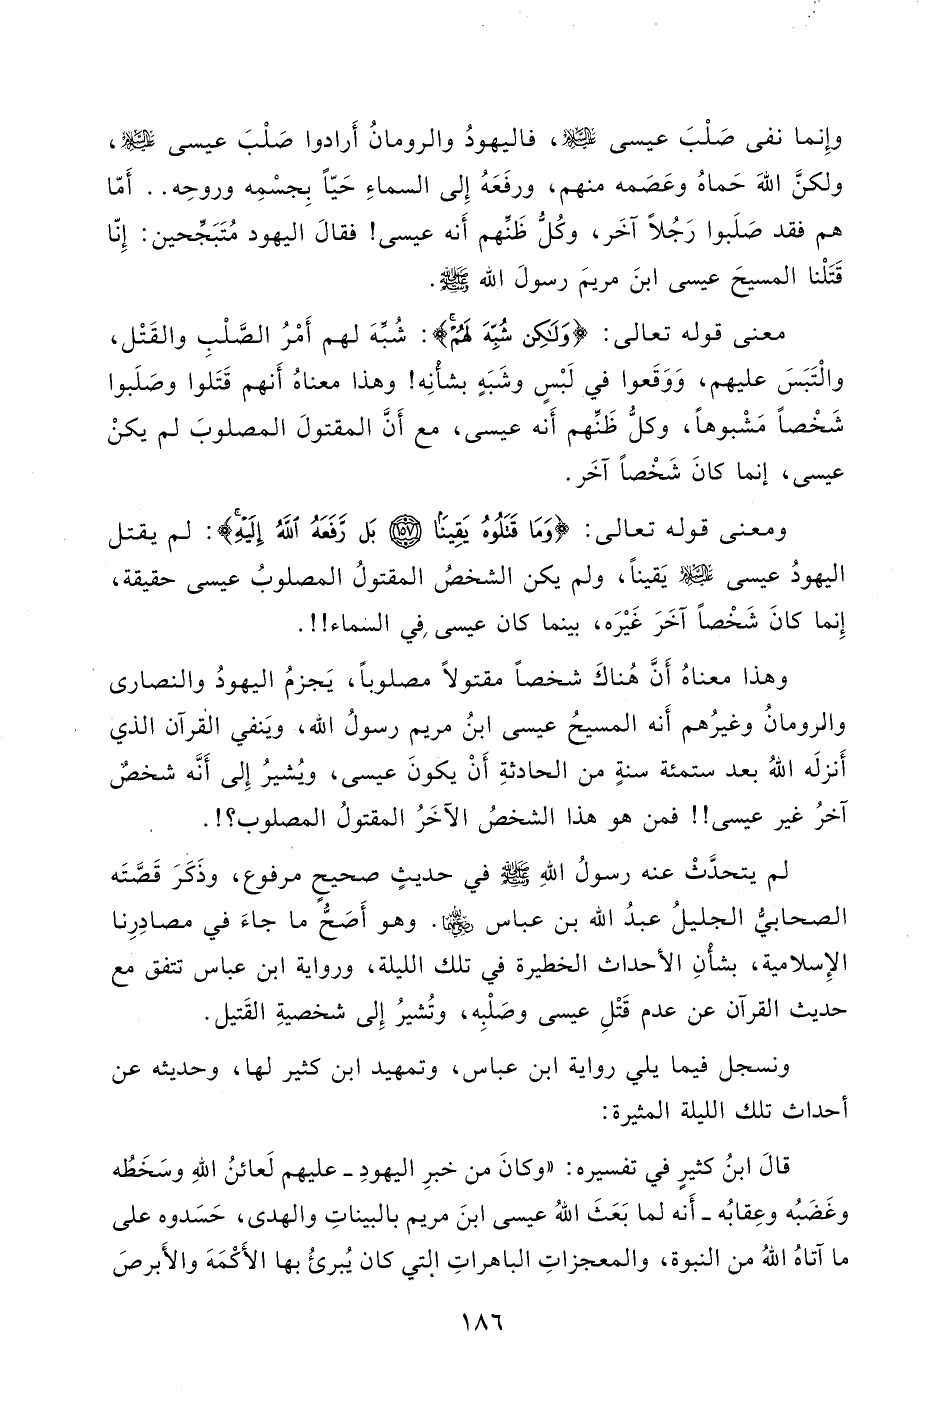 وإنما نفى صَلْبَ عيسى ﷺ، فاليهودُ والرومانُ أرادوا صَلْبَ عيسى ﷺ،
ولكنَّ اللهَ حَماهُ وعَصَمه منهم، ورفَعَهُ إلى السماءِ حَيّاً بِجسْمِه وروحِه.. أمّا
هم فقد صَلَبوا رَجُلاً آخَر، وكُلُّ ظَنِّهم أنه عيسى! فقالَ اليهود مُتَبَجِّحين: إنّا
قَتَلْنا المسيحَ عيسى ابنَ مريمَ رسولَ الله ﷺ.
معنى قوله تعالى: ﴿وَلَٰكِن شُبِّهَ لَهُمْ﴾: شُبِّهَ لهم أَمْرُ الصَّلْبِ والقَتْل،
والْتَبَسَ عليهم، وَوَقَعوا في لَبْسٍ وشَبَهٍ بشأْنِه! وهذا معناهُ أنهم قَتَلوا وصَلَبوا
شَخْصاً مَشْبوهاً، وكلُّ ظَنِّهم أنه عيسى، مع أَنَّ المقتولَ المصلوبَ لم يكنْ
عيسى، إنما كانَ شَخْصاً آخَر.
ومعنى قوله تعالى: ﴿وَمَا قَتَلُوهُ يَقِينًا ۝١٥٧ بَل رَّفَعَهُ ٱللَّهُ إِلَيْهِ﴾: لم يقتل
اليهودُ عيسى ﷺ يَقيناً، ولم يكن الشخصُ المقتولُ المصلوبُ عيسى حقيقة،
إنما كانَ شَخْصاً آخَرَ غَيْرَه، بينما كان عيسى في السماء!!.
وهذا معناهُ أنَّ هُناكَ شخصاً مقتولاً مصلوباً، يَجزمُ اليهودُ والنصارى
والرومانُ وغيرُهم أنه المسيحُ عيسى ابنُ مريم رسولُ الله، ويَنفي القرآن الذي
أنزلَه اللهُ بعد ستمئة سنةٍ من الحادثةِ أنْ يكونَ عيسى، ويُشيرُ إلى أنَّه شخصٌ
آخرُ غير عيسى!! فمن هو هذا الشخصُ الآخَرُ المقتولُ المصلوب؟!.
لم يتحدَّثْ عنه رسولُ اللهِ ﷺ في حديثٍ صحيحٍ مرفوع، وذَكَرَ قصَّتَه
الصحابيُّ الجليلُ عبدُ الله بن عباس رضي الله عنهما. وهو أَصَحُّ ما جاءَ في مصادِرِنا
الإسلامية، بشأنِ الأحداث الخطيرة في تلك الليلة، ورواية ابن عباس تتفق مع
حديث القرآن عن عدم قَتْلِ عيسى وصَلْبِه، وتُشيرُ إلى شخصيةِ القَتيل.
ونسجل فيما يلي رواية ابن عباس، وتمهيد ابن كثير لها، وحديثه عن
أحداث تلك الليلة المثيرة:
قالَ ابنُ كثيرٍ في تفسيره: «وكانَ من خبرِ اليهودِ ـ عليهم لَعائنُ اللهِ وسَخَطُه
وغَضَبُه وعِقابُه ـ أنه لما بَعَثَ اللهُ عيسى ابنَ مريم بالبيناتِ والهدى، حَسَدوه على
ما آتاهُ اللهُ من النبوة، والمعجزاتِ الباهراتِ التي كان يُبرئُ بها الأَكْمَهَ والأَبرصَ
١٨٦